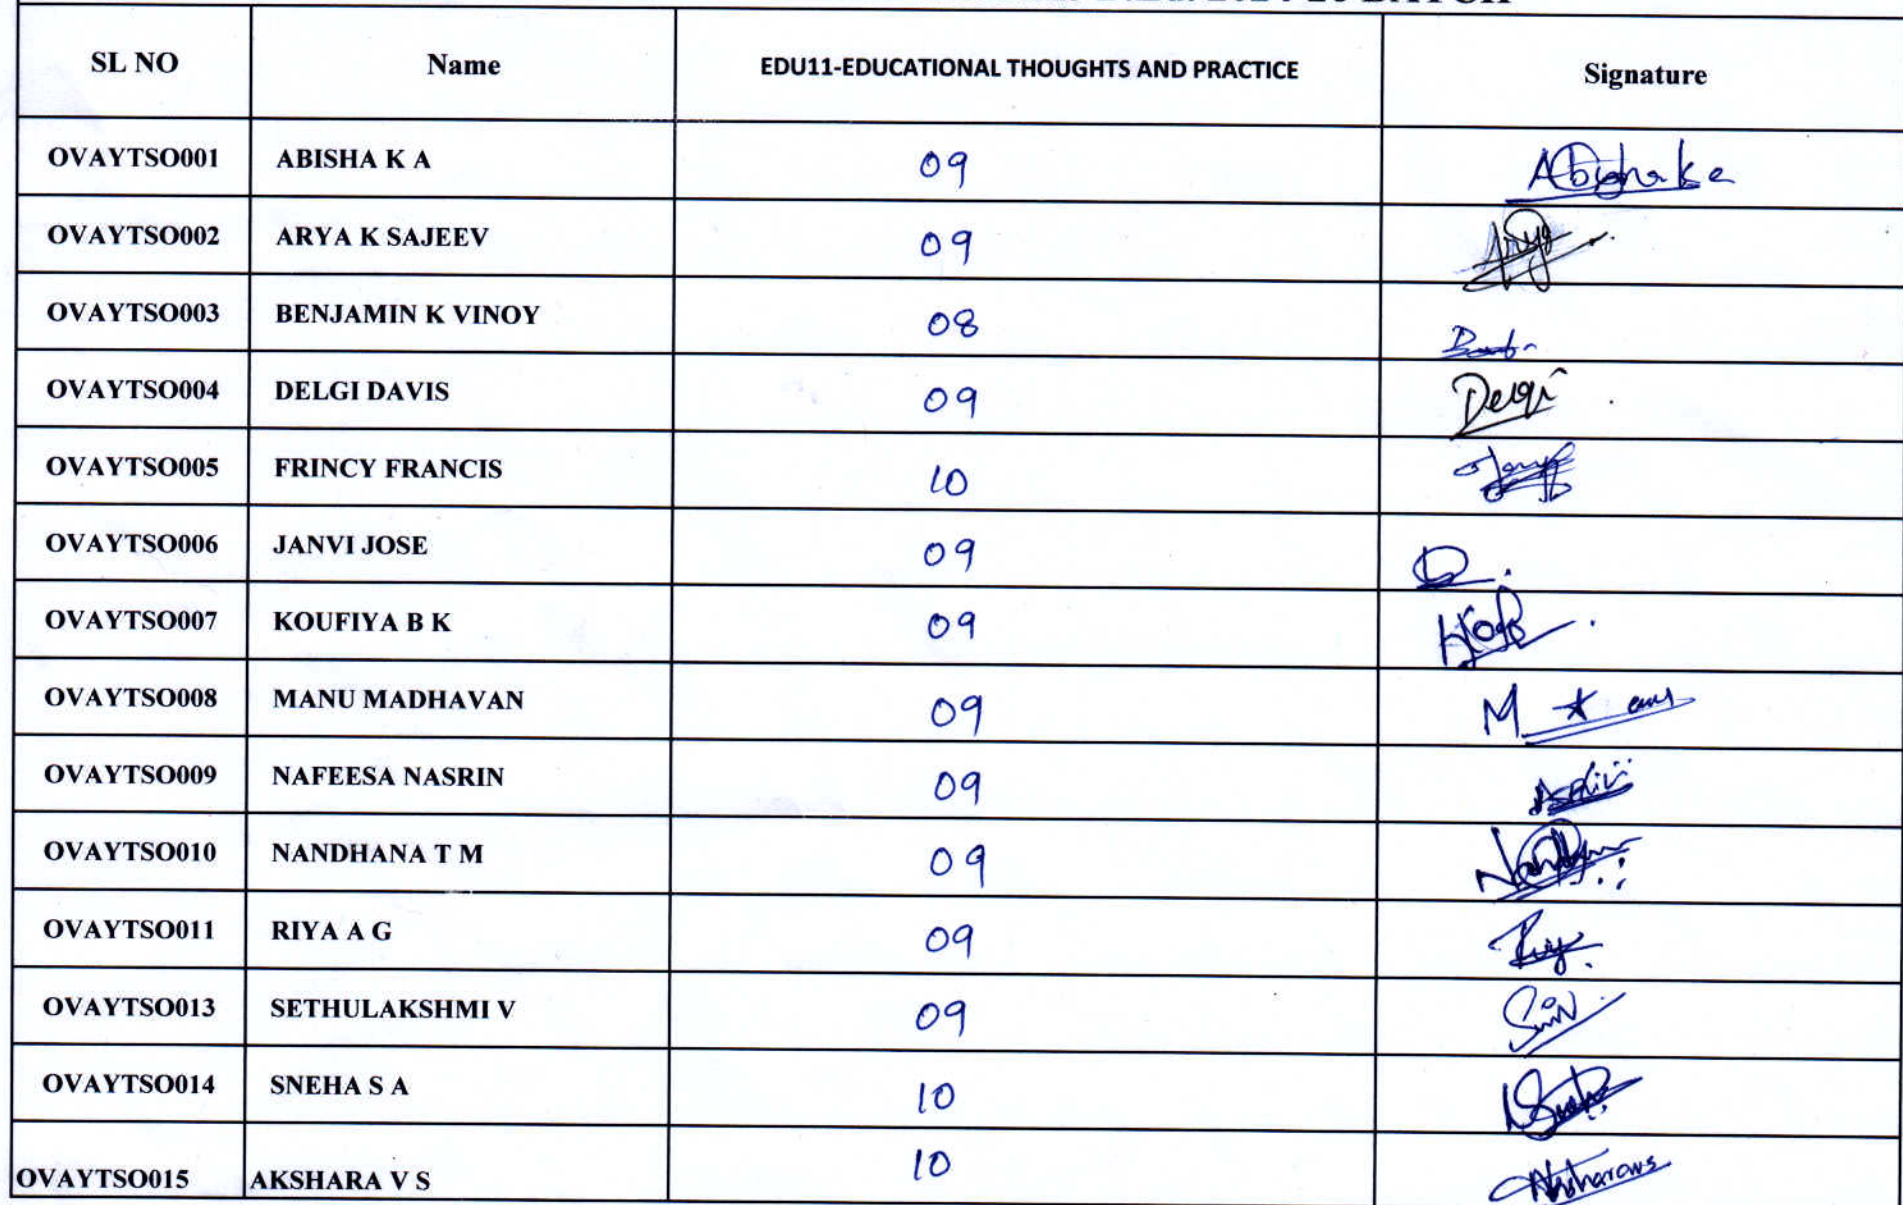 BATCH
SL NO Name EDU11-EDUCATIONAL THOUGHTS AND PRACTICE Signature
OVAYTSO001 ABISHA K A 09
OVAYTSO002 ARYA K SAJEEV 09
OVAYTSO003 BENJAMIN K VINOY 08
OVAYTSO004 DELGI DAVIS 09 Delgi
OVAYTSO005 FRINCY FRANCIS 10
OVAYTSO006 JANVI JOSE 09
OVAYTSO007 KOUFIYA B K 09
OVAYTSO008 MANU MADHAVAN 09
OVAYTSO009 NAFEESA NASRIN 09
OVAYTSO010 NANDHANA T M 09
OVAYTSO011 RIYA A G 09
OVAYTSO013 SETHULAKSHMI V 09
OVAYTSO014 SNEHA S A 10
OVAYTSO015 AKSHARA V S 10